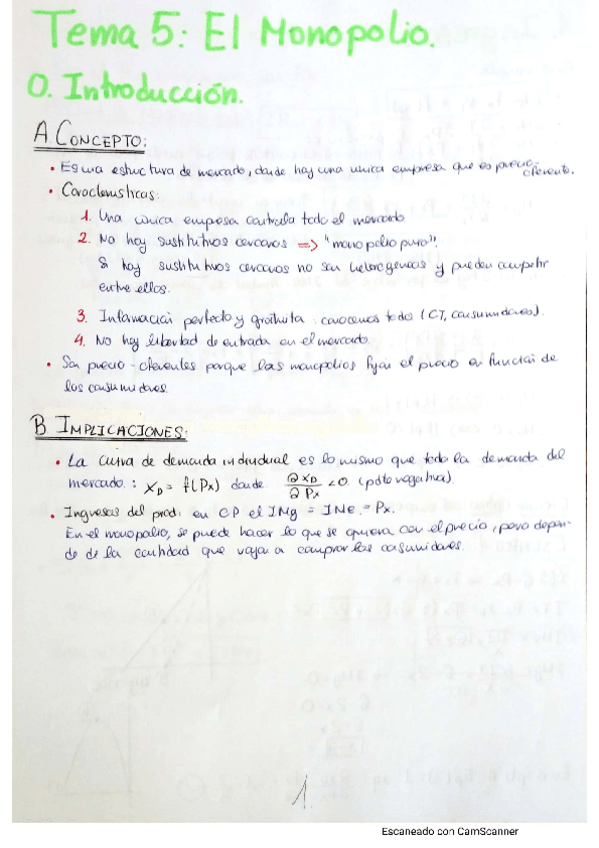 Tema 5: El Monopolio.
0. Introducción.
A CONCEPTO:
• Es una estructura de mercado, donde hay una única empresa que es precio-
oferente.
• Características:
1. Una única empresa controla todo el mercado
2. No hay sustitutivos cercanos => "monopolio puro".
Si hay sustitutivos cercanos no son heterogéneos y pueden competir
entre ellos.
3. Información perfecta y gratuita: conocemos todo (CT, consumidores).
4. No hay libertad de entrada en el mercado
• Son precio-oferentes porque los monopolios fijan el precio en función de
los consumidores
B IMPLICACIONES:
• La curva de demanda individual es lo mismo que toda la demanda del
mercado: X_D = f(Px) donde ∂X_D/∂Px < 0 (pdte negativa)
• Ingresos del prod: en CP el IMg = IMe = Px.
En el monopolio, se puede hacer lo que se quiera con el precio, pero depen-
de de la cantidad que vayan a comprar los consumidores.
1
Escaneado con CamScanner